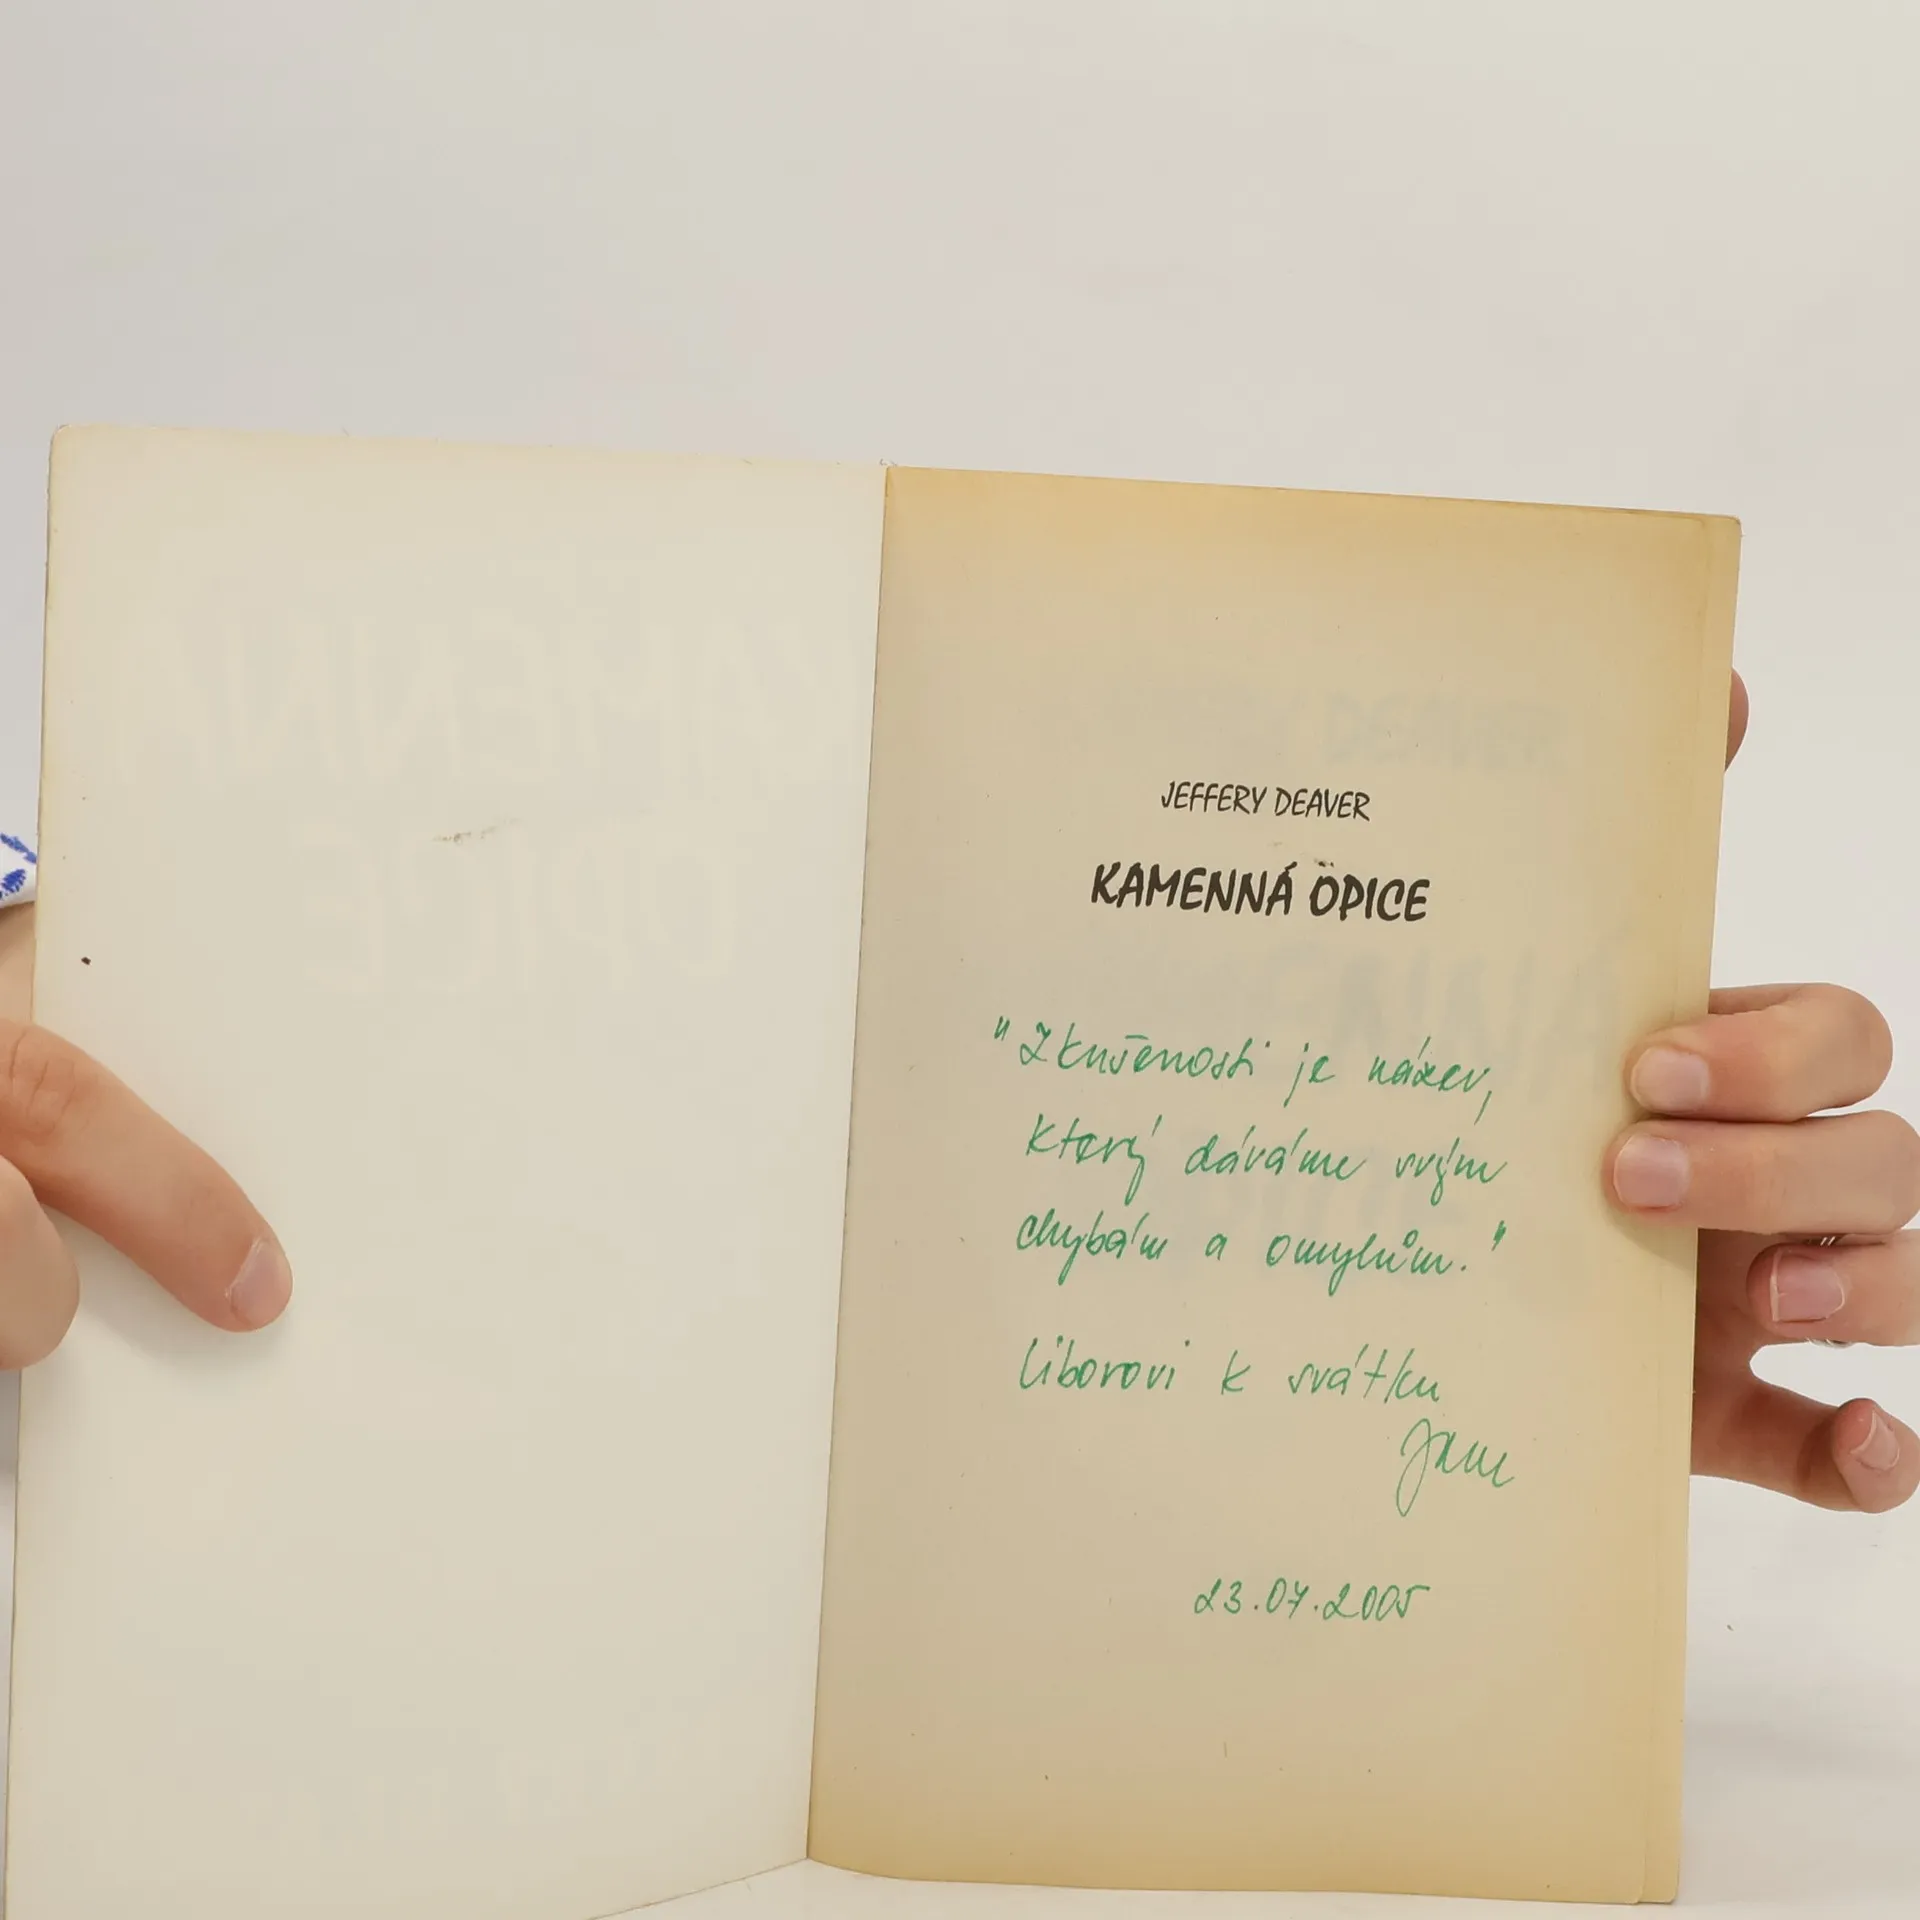 JEFFERY DEAVER
KAMENNÁ OPICE
"Zkušenosti je název,
který dáváme svým
chybám a omylům."
Liborovi k svátku
23.07.2005